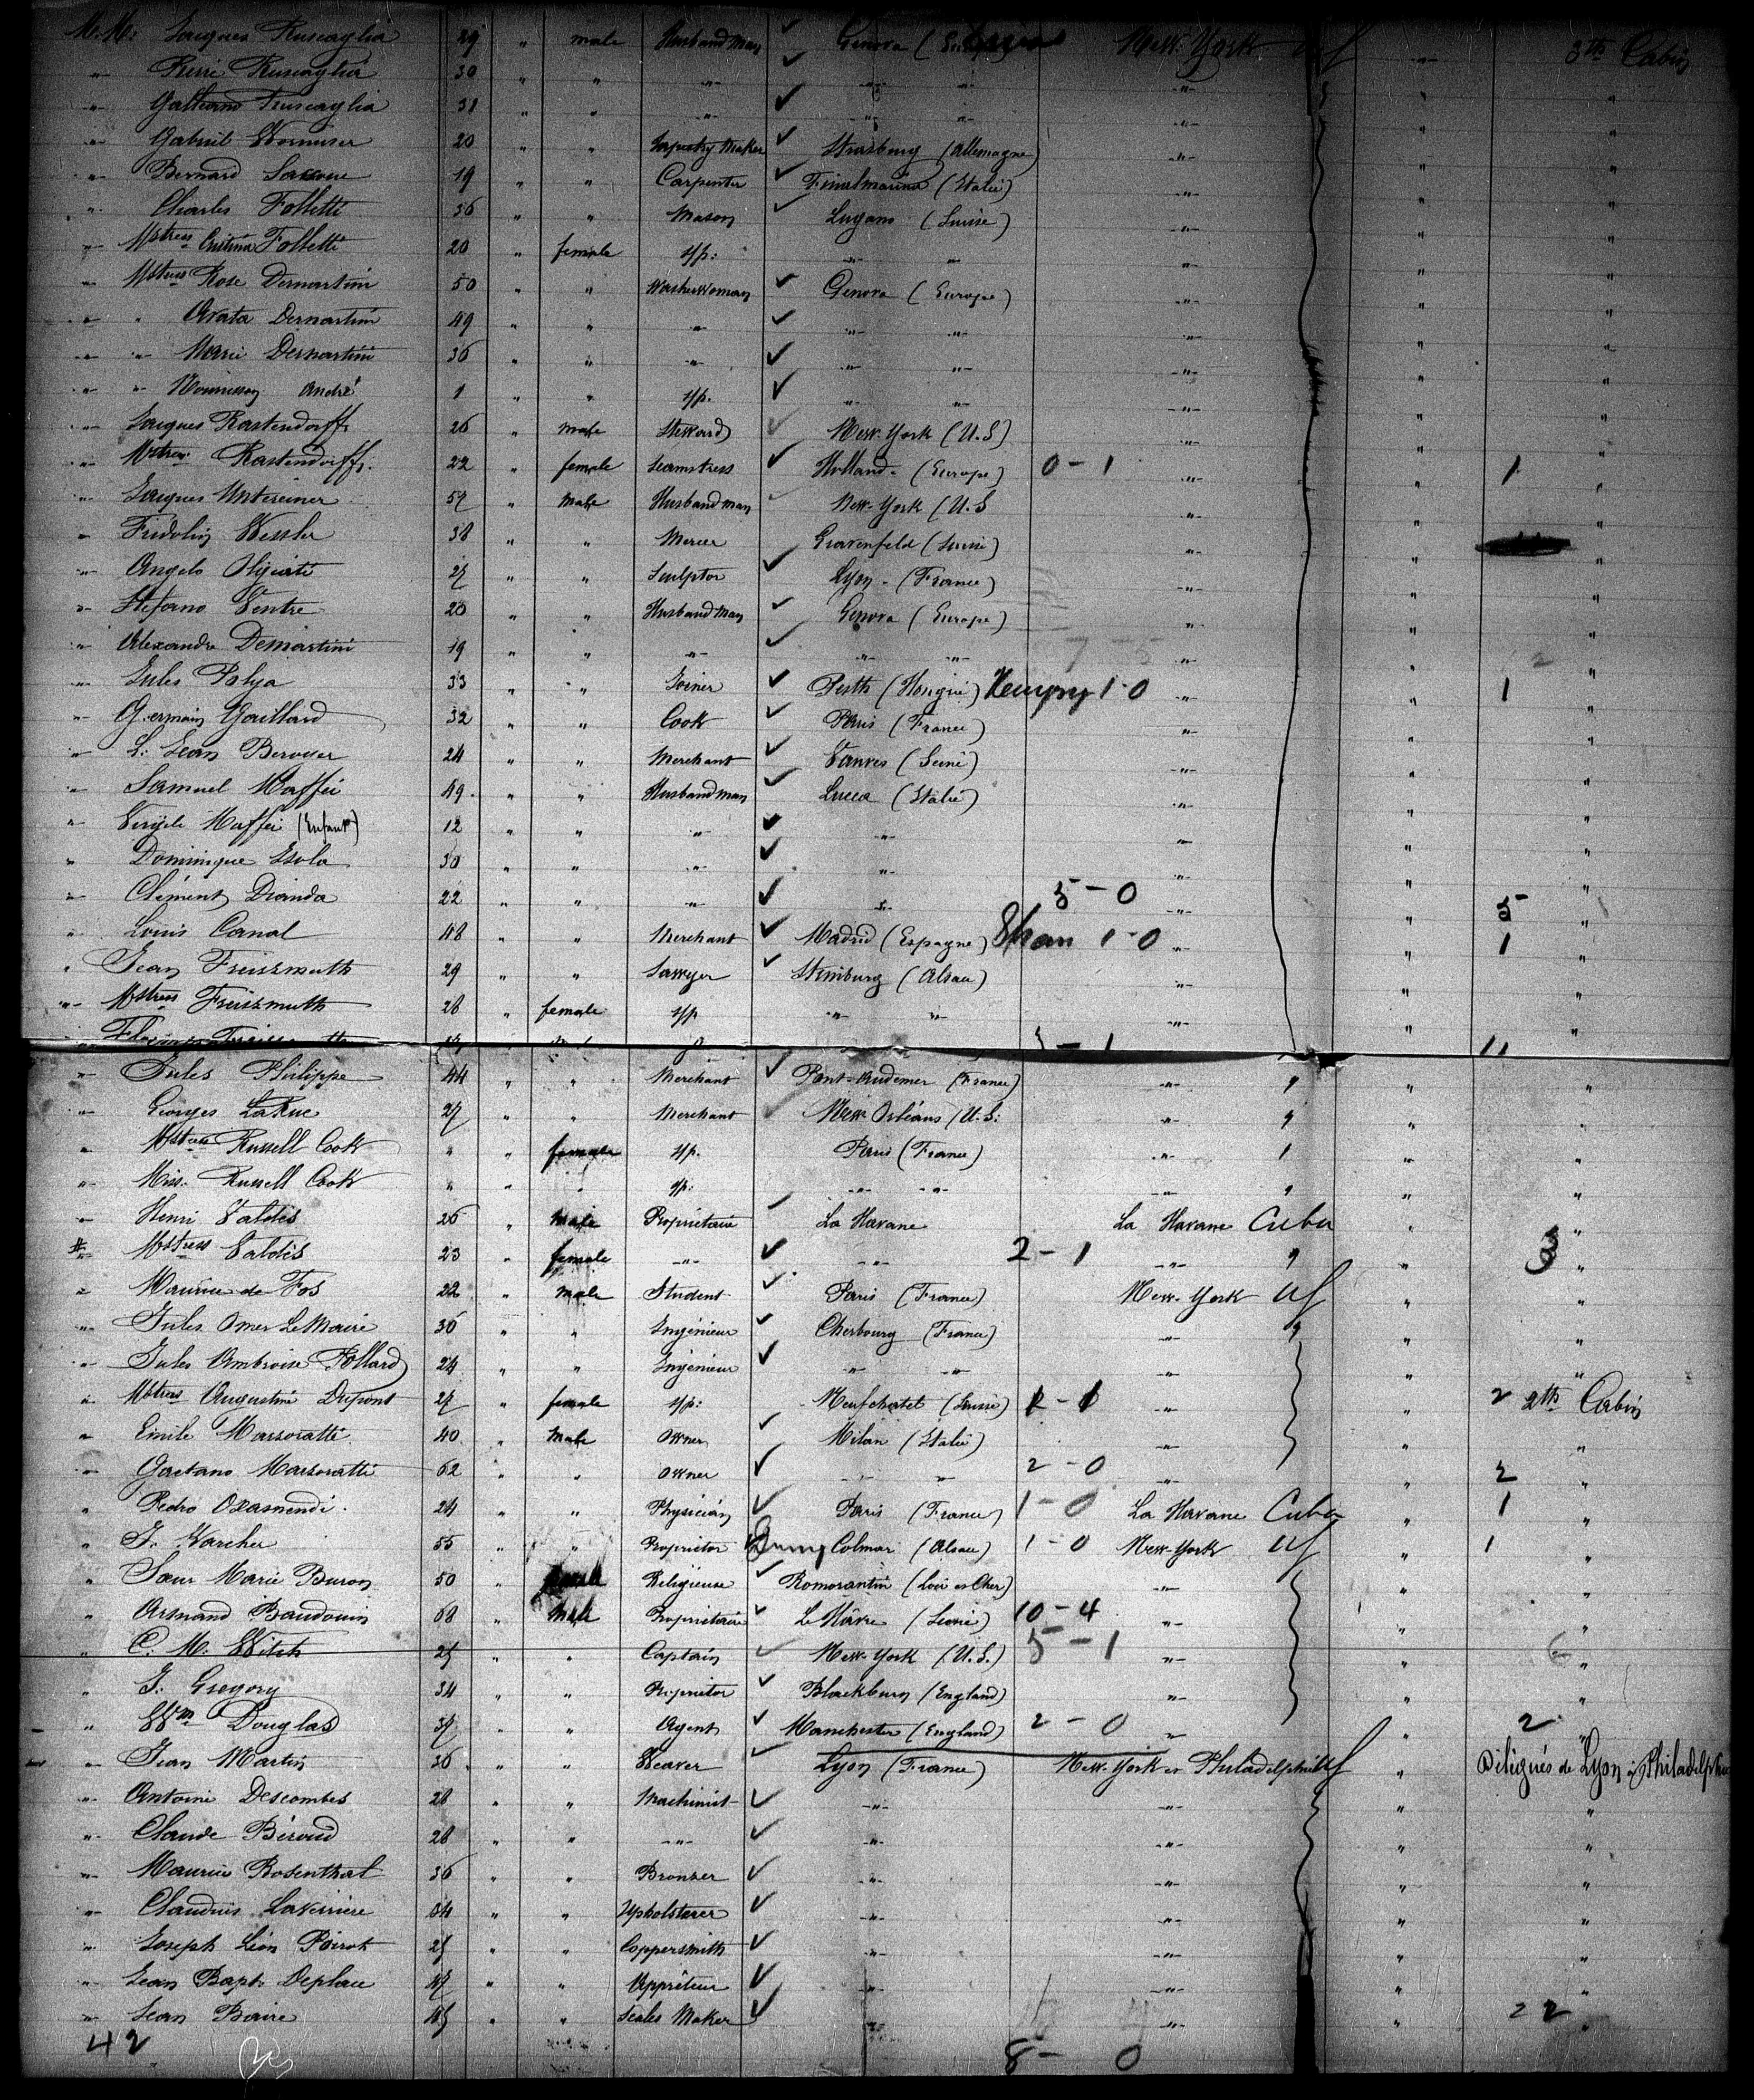 M.M. Jacques Ruscaglia 29 " male Husbandman ✓ Genova ( New-York US " 3th Cabin
" Pierre Ruscaglia 30 " " " ✓ " " " " "
" Ruscaglia 31 " " " ✓ " " " " "
" Gabriel Wormser 20 " " Tapestry Maker ✓ Strasburg (Allemagne) " " "
" Bernard 19 " " Carpenter ✓ Finalmarina (Italie) " " "
" Charles Folletti 36 " " Mason ✓ Lugano (Suisse) " " "
" Mstress Cristina Folletti 20 " female s/p: " " " " "
" Mstress Rose Demartini 50 " " Washerwoman ✓ Genova (Europe) " " "
" " Avata Demartini 49 " " " ✓ " " " " "
" " Marie Demartini 36 " " " ✓ " " " " "
" " Nourisson André 1 " " s/p. ✓ " " " " "
" Jacques Rastendorff 26 " male Steward ✓ New-York (U.S) " " "
" Mstress Rastendorff. 22 " female Seamstress ✓ Holland. (Europe) 0-1 " " 1 "
" Jacques Untereiner 57 " male Husbandman ✓ New-York (U.S " " "
" Fridolin Wessler 38 " " Mercer Gravenfeld (Suisse) " " "
" Angelo 27 " " Sculptor ✓ Lyon-(France) " " "
" Stefano Ventre 20 " " Husbandman ✓ Genova (Europe) " " "
" Alexandre Demartini 19 " " " ✓ " " " " "
" Jules Polya 33 " " Joiner ✓ Pesth (Hongrie) 1-0 " " 1 "
" Germain Gaillard 32 " " Cook ✓ Paris (France) " " "
" L. Jean Berouer 24 " " Merchant ✓ Vanves (Seine) " " "
" Samuel Maffei 49 " " Husbandman ✓ Lucca (Italie) " " "
" Virgile Maffei (Enfant) 12 " " " ✓ " " " "
" Dominique Isola 30 " " " ✓ " " " "
" Clément Dianda 22 " " " ✓ " 5-0 " " 5 "
" Louis Canal 48 " " Merchant ✓ Madrid (Espagne) 1-0 " " 1 "
" Jean Freissmuth 29 " " Sawyer ✓ (Alsace) " " "
" Mstress Freissmuth 28 " female s/p " " " " "
" Jules Philippe 44 " " Merchant ✓ Pont-Audemer (France) " " " "
" Georges LaRue 27 " " Merchant ✓ New Orléans (U.S: " " " "
" Mstress Russell Cook " " female s/p. Paris (France) " " " "
" Miss. Russell Cook " " " s/p: " " " " " "
" Henri Valdés 26 " male Propriétaire ✓ La Havane La Havane Cuba " "
" Mstress Valdés 23 " female " ✓ " 2-1 " " " 3 "
" Maurice de Fos 22 " male Student ✓ Paris (France) New-York US " "
" Jules Omer LeMaire 36 " " Ingénieur ✓ Cherbourg (France) " " " "
" Jules Ambroise Pollard 24 " " Ingénieur ✓ " " " " "
" Mstress Augustine Dupont 27 " female s/p: Neufchatel (Suisse) 1-1 " " 2 2th Cabin
" Emile Marsoratti 40 " male Owner ✓ Milan (Italie) " " "
" Gaetano Marsoratti 62 " " Owner ✓ " " 2-0 " " 2 "
" Pedro Oxamendi. 24 " " Physician ✓ Paris (France) 1-0 La Havane Cuba " 1 "
" J. Karcher 55 " " Proprietor ✓ Colmar (Alsace) 1-0 New-York US " 1 "
" Sœur Marie Buron 50 " female Religieuse ✓ Romorantin (Loir et Cher) " " "
" Armand Baudouin 68 " male Propriétaire ✓ Le Hâvre 10-4 " " "
" C. M. 25 " " Captain ✓ New-York (U.S.) 5-1 " " 6 "
" J. Gregory 34 " " Proprietor ✓ Blackburn (England) " " "
" Wm Douglas 37 " " Agent ✓ Manchester (England) 2-0 " " 2 "
" Jean Martin 36 " " Weaver ✓ Lyon (France) New-York et Philadelphie US " Délégués de Lyon à Philadelphie
" Antoine Descombes 28 " " Machinist ✓ " " " "
" Claude Béraud 28 " " " ✓ " " " "
" Maurice Rosenthal 36 " " Bronzer ✓ " " " "
" Claudius Laverrière 34 " " Upholsterer ✓ " " " "
" Joseph Léon Poirot 25 " " Coppersmith ✓ " " " "
" Jean Bapt. Deplace 47 " " Apprêteur ✓ " " " "
" Jean Baire 45 " " Scales Maker ✓ " " " 22 "
42 8-0